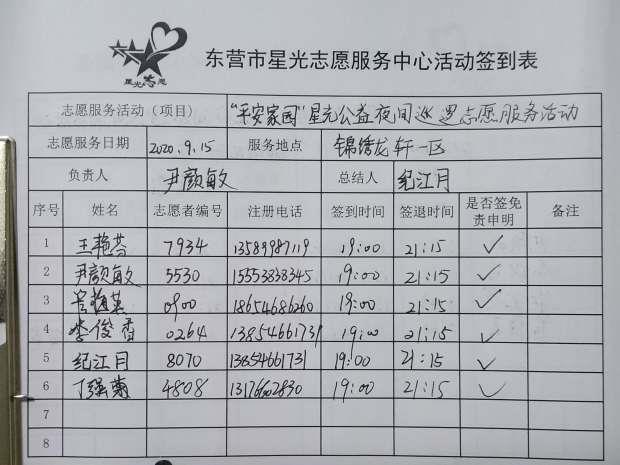 星光志愿
东营市星光志愿服务中心活动签到表
志愿服务活动（项目） "平安家园"星光公益夜间巡逻志愿服务活动
志愿服务日期 2020.9.15 服务地点 锦绣龙轩一区
负责人 尹颜敏 总结人 纪江月
序号 姓名 志愿者编号 注册电话 签到时间 签退时间 是否签免责申明 备注
1 王艳芬 7934 13589987119 19:00 21:15 ✓
2 尹颜敏 5530 15553838345 19:00 21:15 ✓
3 0900 18654686260 19:00 21:15 ✓
4 李俊香 0264 13854661731 19:00 21:15 ✓
5 纪江月 8070 13854661731 19:00 21:15 ✓
6 丁强菊 4808 13176602830 19:00 21:15 ✓
7
8